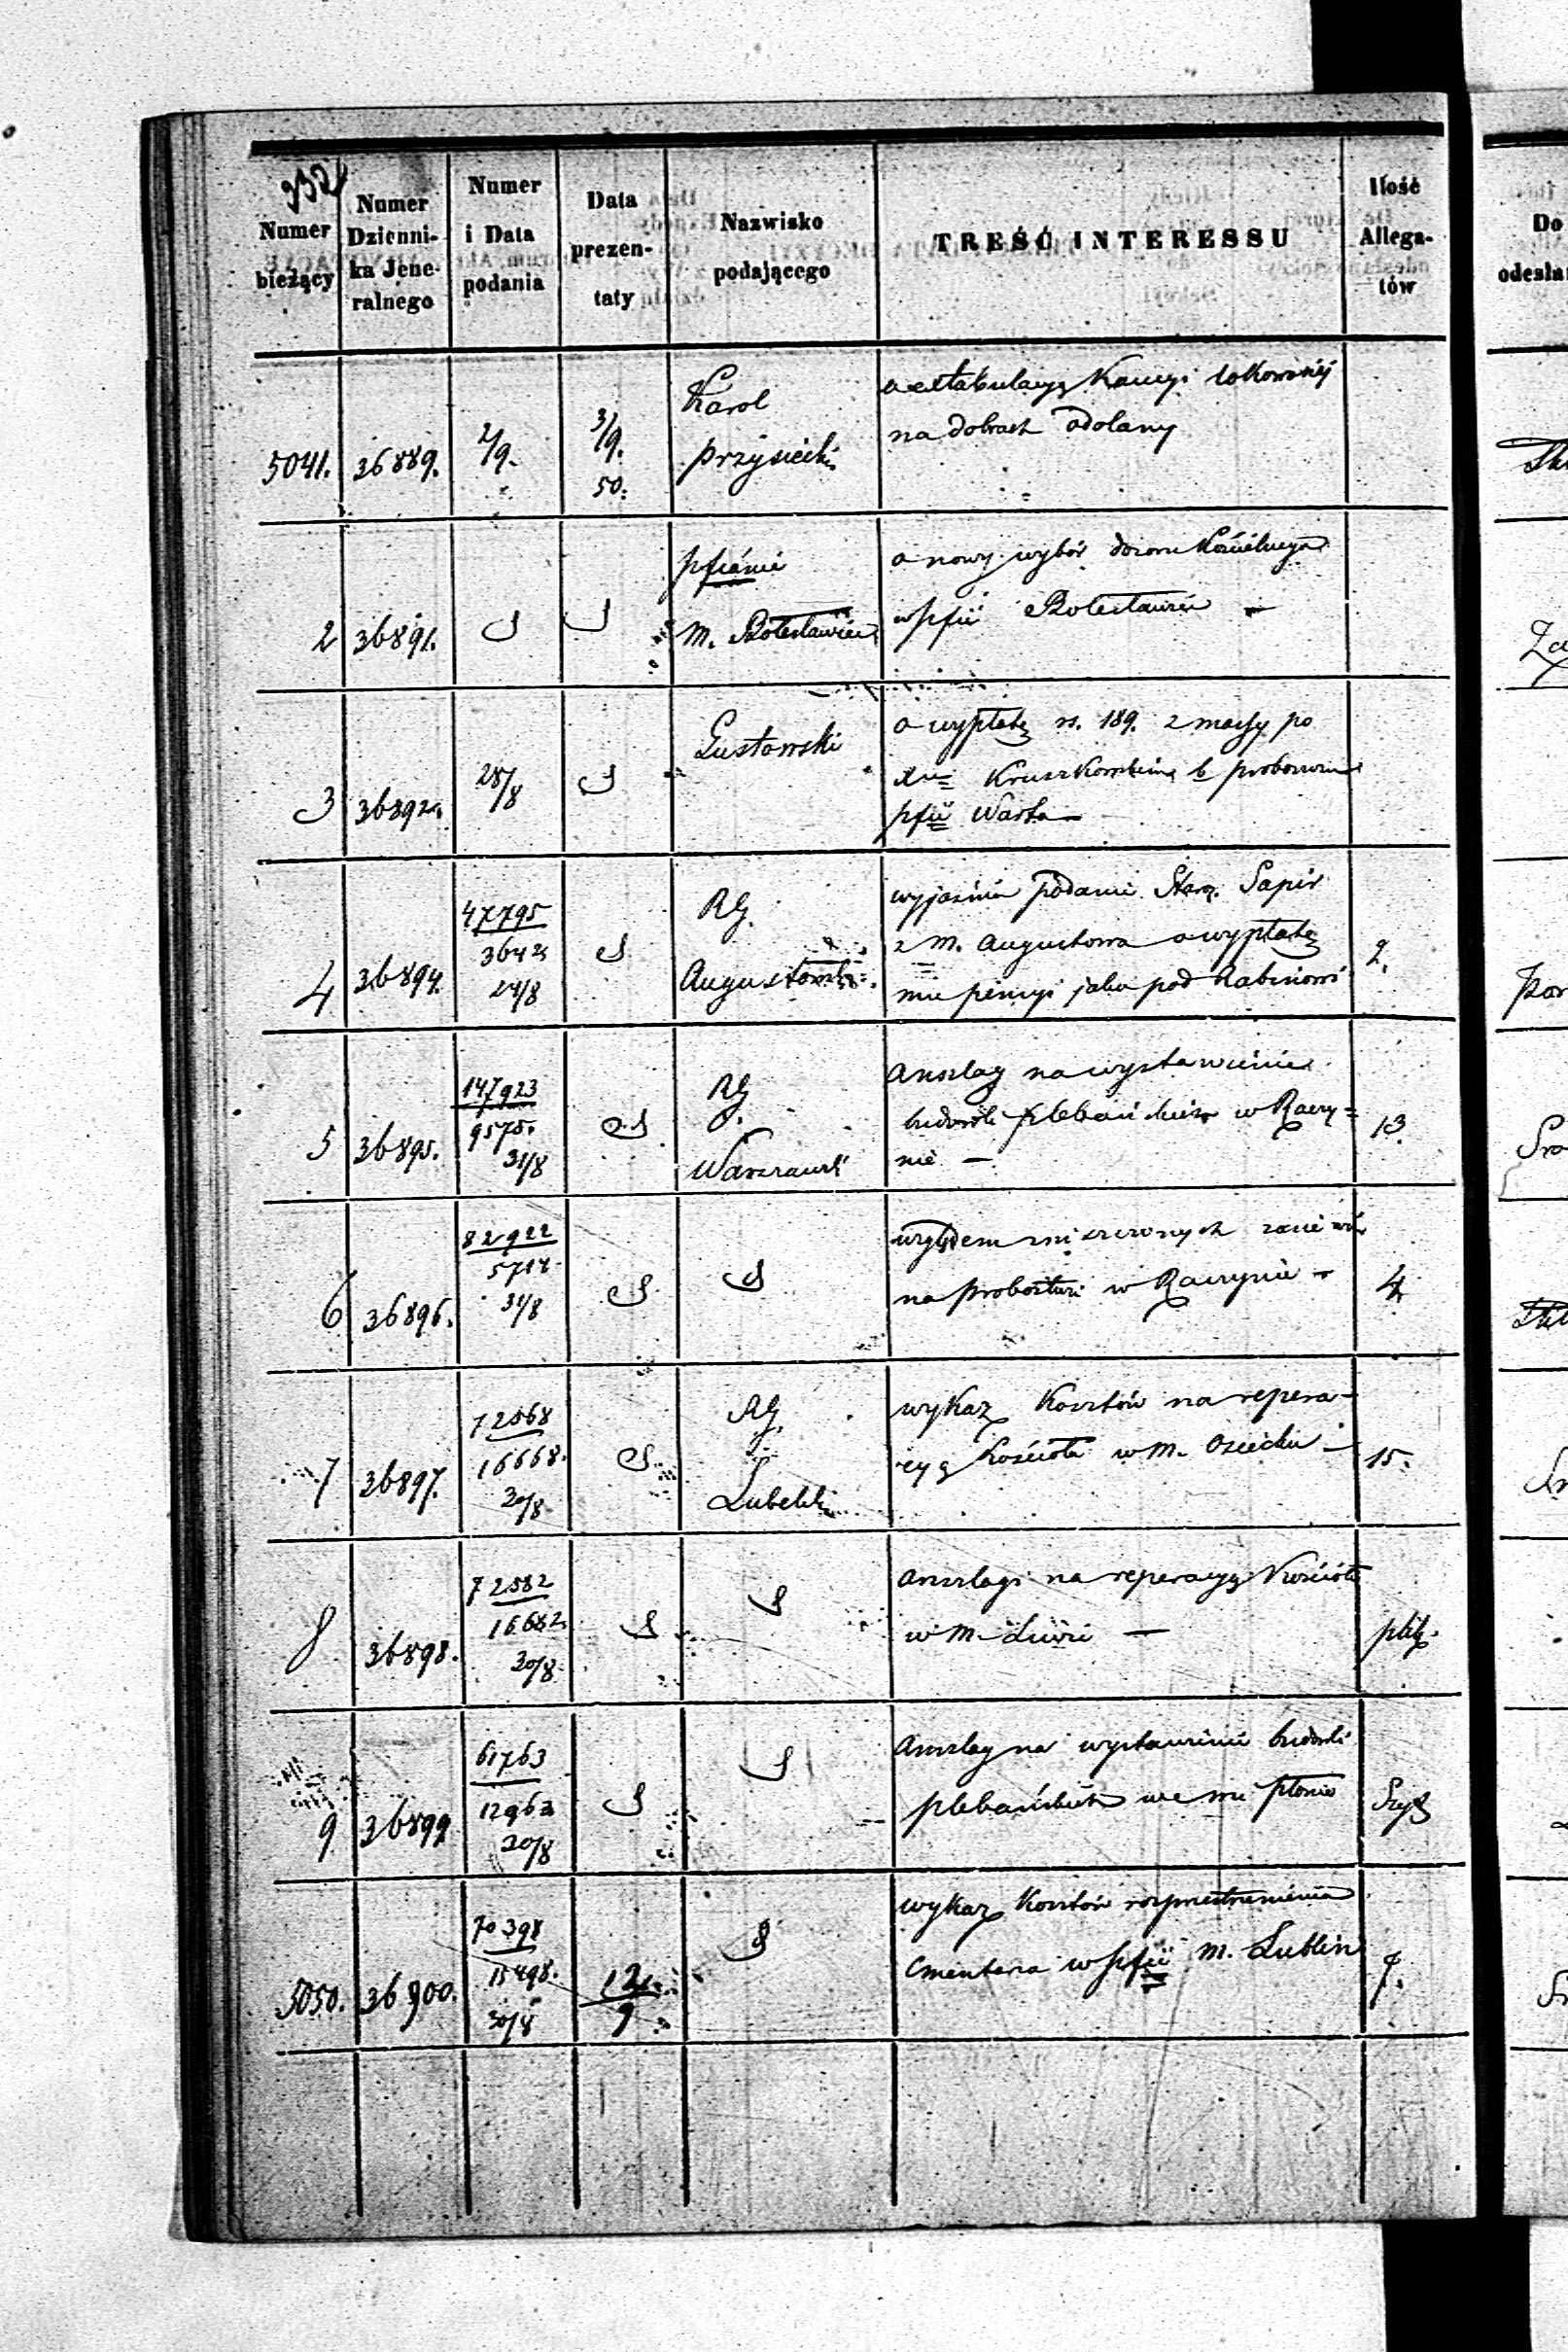 332
Numer bieżący | Numer Dzienni-ka Jene-ralnego | Numer i Data podania | Data prezen-taty | Nazwisko podającego | TREŚĆ INTERESSU | Ilość Allega-tów
Do
odesła
5041. | 36889. | 2/9. | 3/9. 50. | Karol
Przysiecki
o extabulacyą Kaucyi lokowanéj
na dobrach Adolany
2 | 36891. | pfianie
m. Bolesławiec
o nowy wybór dozoru Kościelnego
w pfii Bolesławiec —
3 | 36892. | 28/8 | Gustowski
o wypłatę rs. 189. z massy po
Kruszkowskim b. proboszczu
pfii Warta —
4 | 36894. | 47795
3642
24/8
RG.
Augustowski
wyjaśnia podanie Star. Sapir
z m. Augustowa o wypłatę
mu pensyi jako pod Rabinowi
2.
5 | 36895. | 147923
9575.
31/8
RG.
Warszawski
Anszlag na wystawienie
budowli plebańskich w Raczy=
nie —
13.
6 | 36896. | 82922
5714
31/8
względem zniszczonych
na probostwie w Raczynie —
4
7 | 36897. | 72568
16668.
30/8
RG.
Lubelski
wykaz Kosztów na repera-
cyą Kościoła w m. Osiecku —
15.
8 | 36898. | 72582
16682
30/8
Anszlagi na reperacyą Kościoła
w m. Liwie —
plik.
9 | 36899 | 61763
12963
20/8
Anszlag na wystawienie budowli
plebańskich we wsi Płonie
5050. | 36900. | 70398
15498.
30/8
12/9
wykaz Kosztów rozprzestrzenienia
Cmentarza w pfii m. Lublin
7.